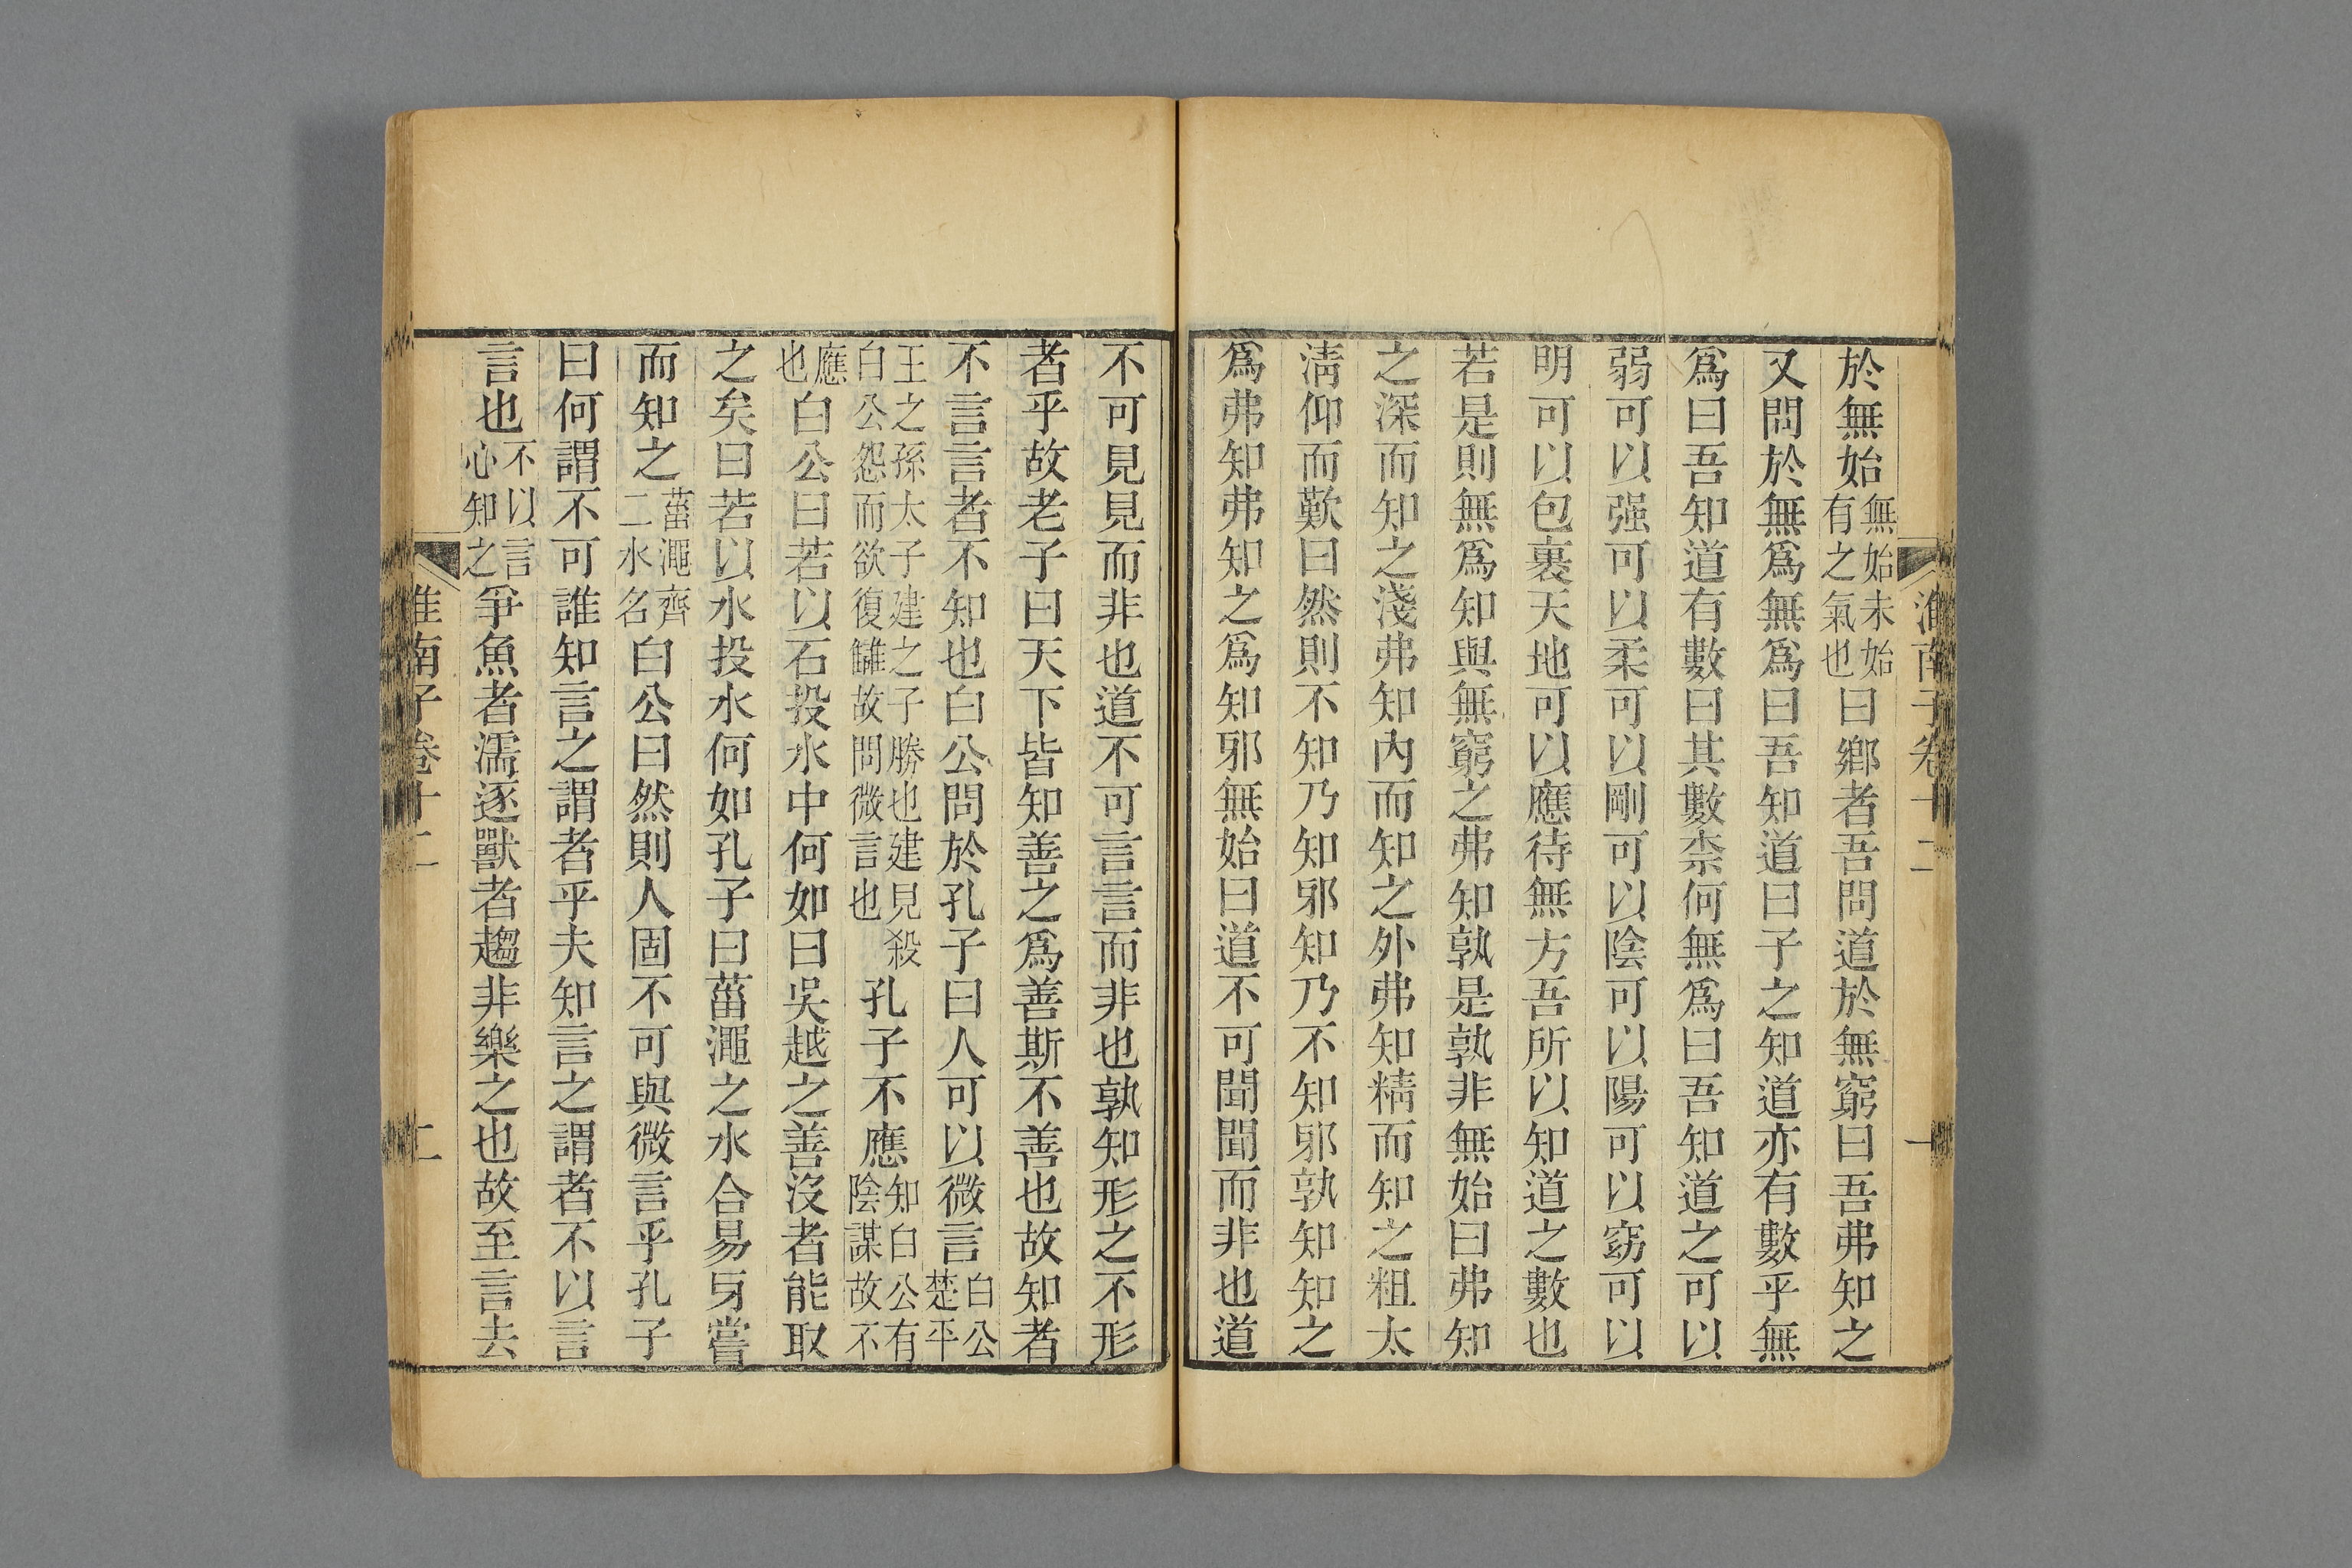 淮南子卷十二
一
於無始無始未始有之氣也曰鄕者吾問道於無窮曰吾弗知之
又問於無爲無爲曰吾知道曰子之知道亦有數乎無
爲曰吾知道有數曰其數柰何無爲曰吾知道之可以
弱可以强可以柔可以剛可以陰可以陽可以窈可以
明可以包裹天地可以應待無方吾所以知道之數也
若是則無爲知與無窮之弗知孰是孰非無始曰弗知
之深而知之淺弗知內而知之外弗知精而知之粗太
淸仰而歎曰然則不知乃知邪知乃不知邪孰知知之
爲弗知弗知之爲知邪無始曰道不可聞聞而非也道
不可見見而非也道不可言言而非也孰知形之不形
者乎故老子曰天下皆知善之爲善斯不善也故知者
不言言者不知也白公問於孔子曰人可以微言白公楚平
王之孫太子建之子勝也建見殺白公怨而欲復讎故問微言也孔子不應知白公有陰謀故不
應也白公曰若以石投水中何如曰吳越之善沒者能取
之矣曰若以水投水何如孔子曰菑澠之水合易牙嘗
而知之菑澠齊二水名白公曰然則人固不可與微言乎孔子
曰何謂不可誰知言之謂者乎夫知言之謂者不以言
言也不以言心知之爭魚者濡逐獸者趨非樂之也故至言去
淮南子卷十二
二